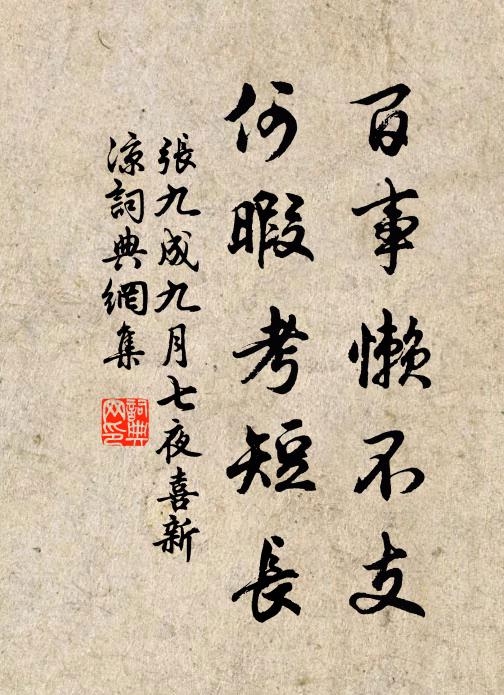 百事懶不支
何暇考短長
張九成九月七夜喜新
涼詞典網集
詞典
网印